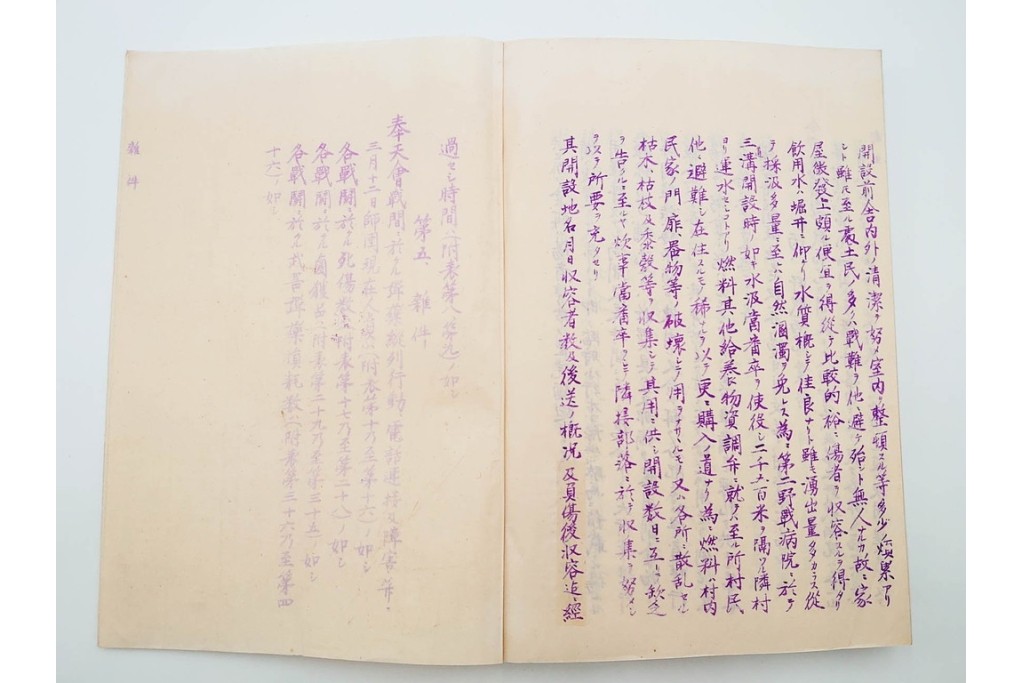 開設前ハ舎内外ノ清潔ヲ努メ室内ノ整頓スル等多少ノ煩累アリ
シト雖モ至ル處土民ノ多クハ戦難ヲ他ニ避ケ殆ント無人ナルカ故ニ家
屋徴發上頗ル便宜ヲ得従テ比較的裕ニ傷者ヲ収容スルヲ得タリ
飲用水ハ堀井ニ仰リ水質概シテ佳良ナリト雖モ湧出量多カラス従
テ採汲多量ニ至レハ自然涸濁ヲ免レス為ニ第二野戦病院ニ於テ
三溝開設時ノ如キ水汲當番卒ヲ使役シ二千五百米ヲ隔ツル隣村
ヨリ運水セシコトアリ燃料其他給養物資調弁ニ就テハ至ル所村民
他ニ避難シ在住スルモノ稀ナルヲ以テ更ニ購入ノ道ナク為ニ燃料ハ村内
民家ノ門扉、器物等ノ破壊シテ用ヲナサルモノ又ハ各所ニ散乱セル
枯木、枯枝及黍殻等ヲ収集シテ其用ニ供シ開設数日ニ互ーリ欠乏
ヲ告クルニ至ルヤ炊事當番卒ヲシテ隣接部落ニ於テ収集ニ努メシ
ヲ以テ所要ヲ充タセリ
其開設地名月日収容者数及後送ノ概況及負傷後収容迄ニ經
過セシ時間ハ附表第八第九ノ如シ
第五、雜件
奉天會戰間ニ於ル弾薬縦列行動、電話連接及障害並
三月十二日師団現在人馬ハ(附表第十乃至第十六)ノ如シ
各戰闘ニ於ル死傷数ハ附表第十七乃至第二十八ノ如シ
各戰闘ニ於ル鹵獲品ハ附表第二十九乃至第三十五ノ如シ
各戰闘ニ於ル武器弾薬損耗数ハ(附表第三十六乃至第四
十六)ノ如シ
雜件